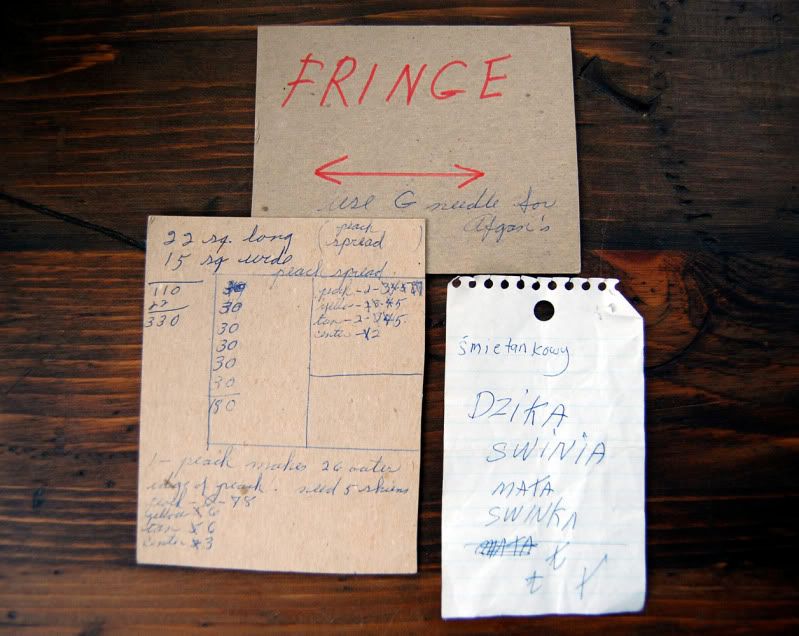 FRINGE
use G needle for
Afgan's
22 sq. long
15 sq wide
(peach
spread)
peach spread.
110
330
30
30
30
30
30
180
peach - 2 -
yellow -
tan - 2 -
center - 2
1 - peach makes 26 outer
edge of peach. need 5 skiens
78
yellow x 6
tan x 6
center x 3
śmietankowy
DZIKA
SWINIA
MAŁA
SWINKA
ł
ł ł